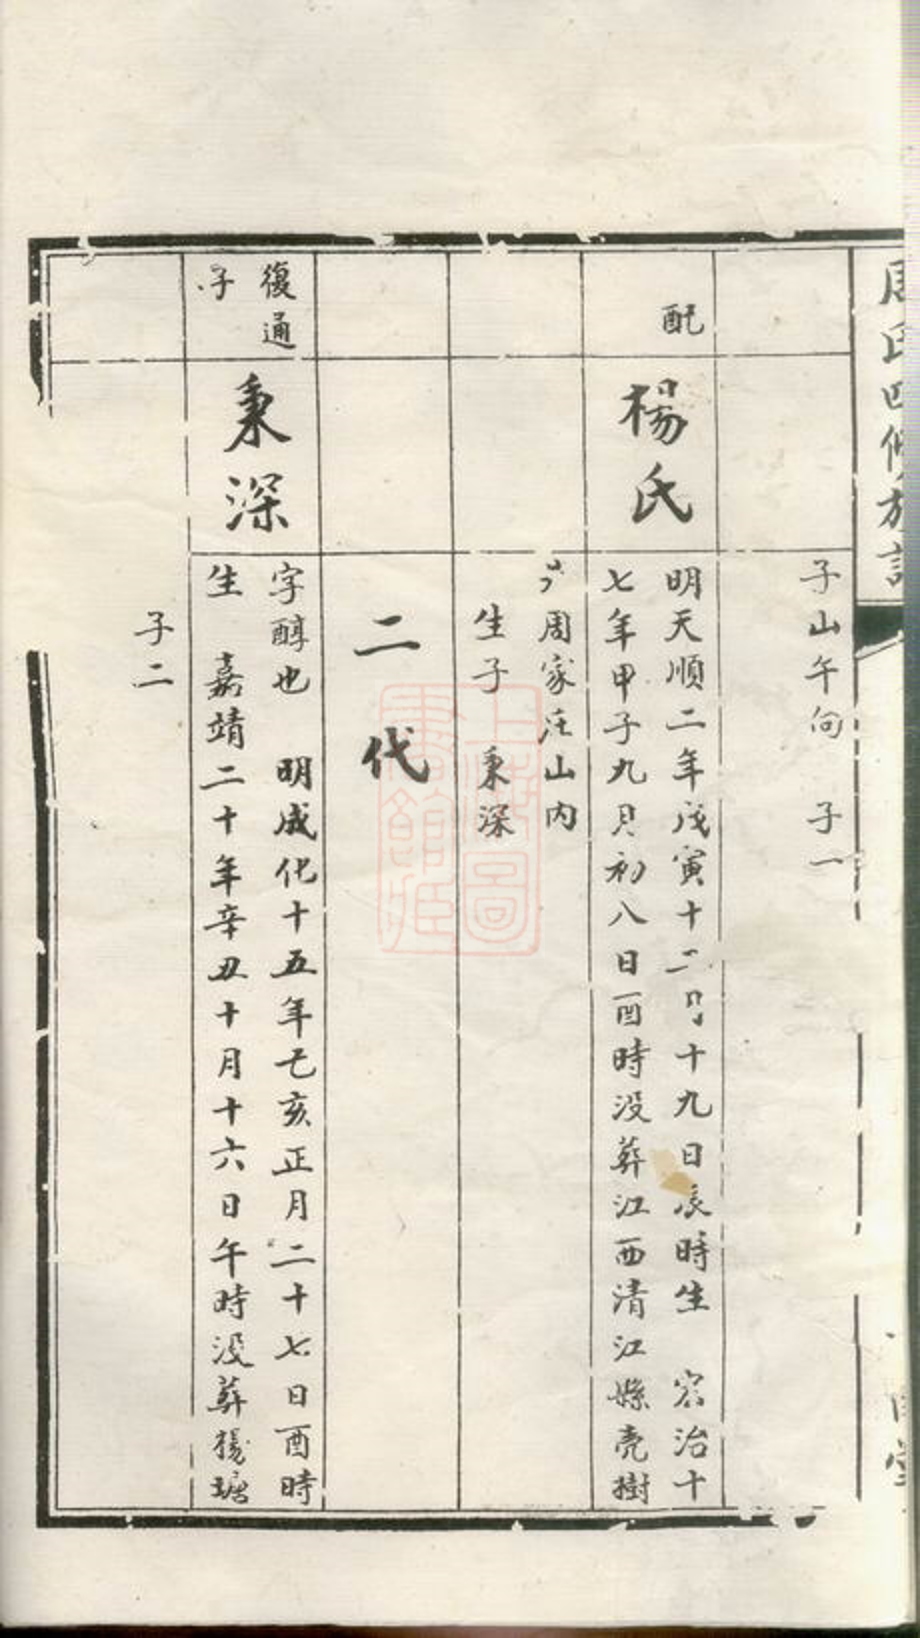 周氏四修族譜
子山午向 子一
配
楊氏
明天順二年戊寅十二月十九日辰時生 宏治十
七年甲子九月初八日酉時没葬江西清江縣亮樹
周家汪山内
生子 秉深
二代
復通
子
秉深
字醇也 明成化十五年乞亥正月二十七日酉時
生 嘉靖二十年辛丑十月十六日午時没葬楊塘
子二
上海圖
書館藏